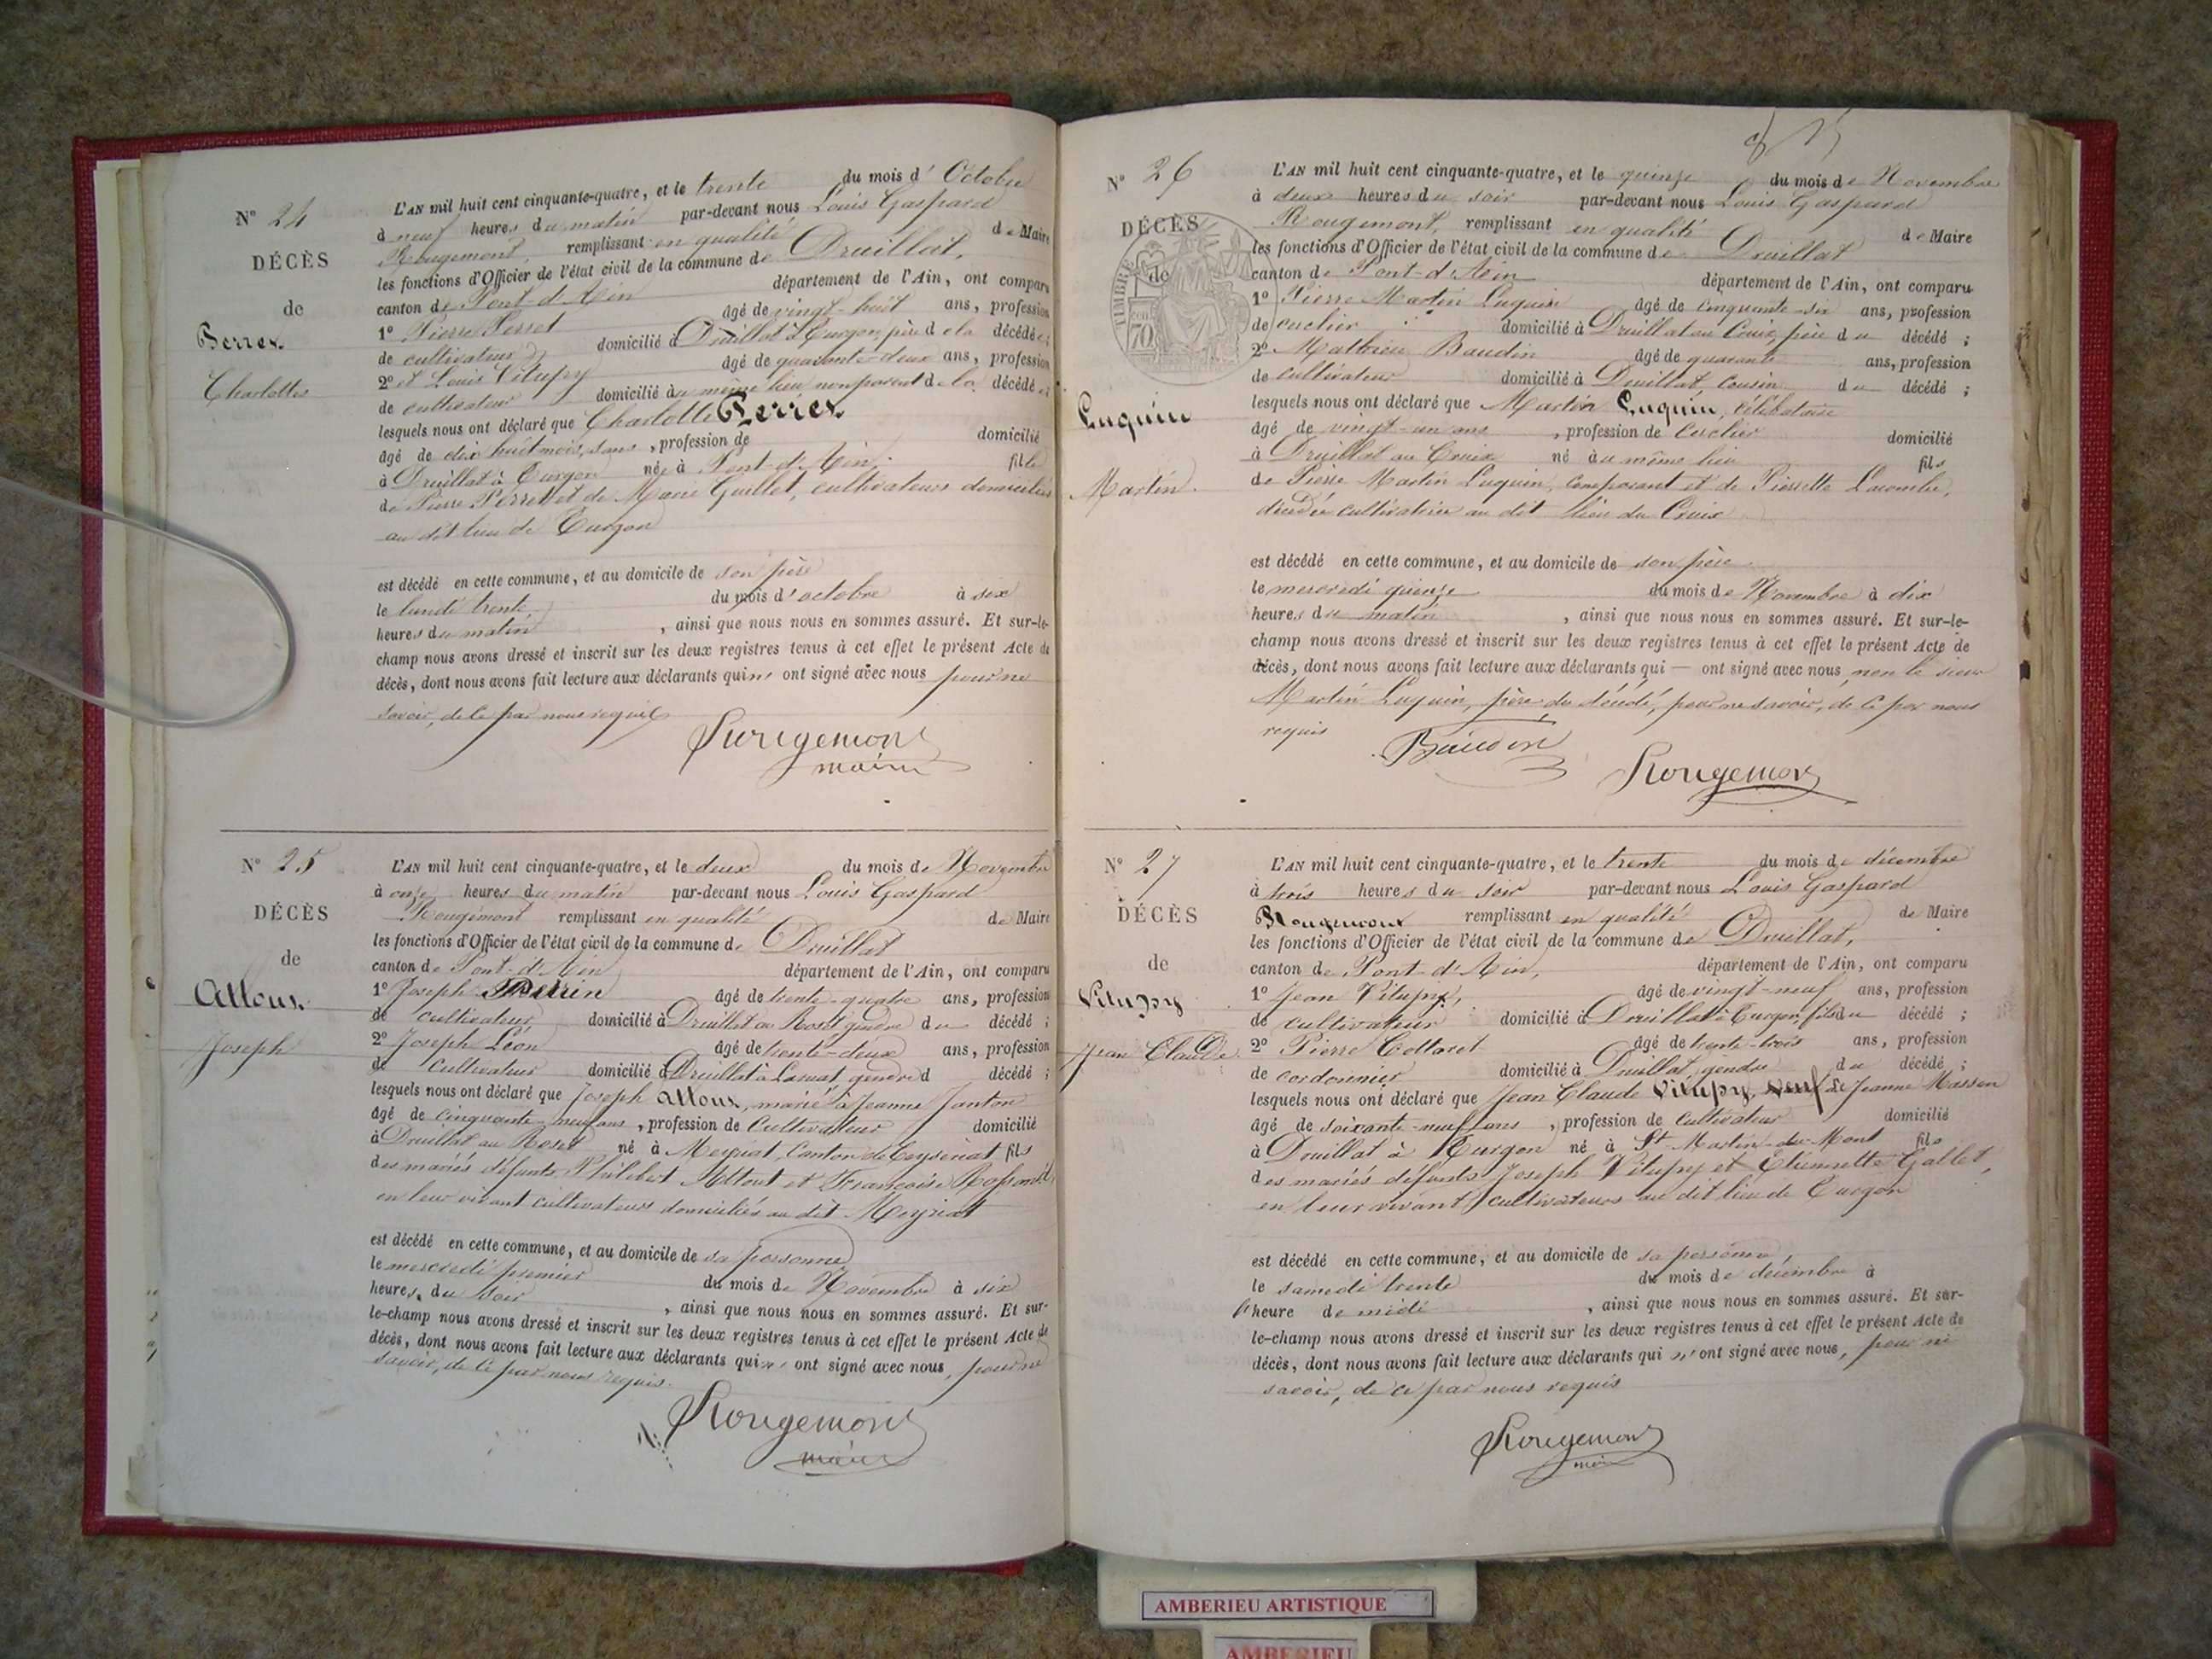 N° 24
DÉCÈS
de
Perret
Charlotte
L'AN mil huit cent cinquante-quatre, et le trente du mois d' Octobre
à neuf heures du matin par-devant nous Louis Gaspard
Rougemont, remplissant en qualité de Maire
les fonctions d'Officier de l'état civil de la commune de Druillat,
canton de Pont d'Ain département de l'Ain, ont comparu
1° Pierre Perret âgé de vingt-huit ans, profession
de cultivateur domicilié à Druillat à Turgon, père de la décédée;
2° et Louis Vitupy âgé de quarante-deux ans, profession
de cultivateur domicilié au même lieu non parent de la décédée
lesquels nous ont déclaré que Charlotte Perret
âgé de dix huit mois, sans, profession de domicilié
à Druillat à Turgon née à Pont-d'Ain. fille
de Pierre Perret et de Marie Guillet, cultivateurs domiciliés
au dit lieu de Turgon
est décédé en cette commune, et au domicile de son père
le lundi trente du mois d'octobre à six
heures du matin, ainsi que nous nous en sommes assuré. Et sur-le-
champ nous avons dressé et inscrit sur les deux registres tenus à cet effet le présent Acte de
décès, dont nous avons fait lecture aux déclarants qui n' ont signé avec nous pour ne
savoir, de ce par nous requis
Rougemont
maire
N° 25
DÉCÈS
de
Alloux
Joseph
L'AN mil huit cent cinquante-quatre, et le deux du mois de Novembre
à onze heures du matin par-devant nous Louis Gaspard
Rougemont remplissant en qualité de Maire
les fonctions d'Officier de l'état civil de la commune de Druillat
canton de Pont-d'Ain département de l'Ain, ont comparu
1° Joseph Perrin âgé de trente-quatre ans, profession
de cultivateur domicilié à Druillat au Roset gendre du décédé;
2° Joseph Léon âgé de trente-deux ans, profession
de cultivateur domicilié à Druillat à gendre d décédé;
lesquels nous ont déclaré que Joseph Alloux, marié à Jeanne Janton
âgé de cinquante-neuf ans, profession de Cultivateur domicilié
à Druillat au Roset né à Meyriat, Canton de Ceyseriat fils
des mariés défunts Philibert Alloux et Françoise
en leur vivant cultivateurs domiciliés au dit Meyriat
est décédé en cette commune, et au domicile de sa personne
le mercredi premier du mois de Novembre à six
heures du soir, ainsi que nous nous en sommes assuré. Et sur-
le-champ nous avons dressé et inscrit sur les deux registres tenus à cet effet le présent Acte de
décès, dont nous avons fait lecture aux déclarants qui n' ont signé avec nous, pour ne
savoir, de ce par nous requis.
Rougemont
maire
N° 26
DÉCÈS
de
TIMBRE
70
Luquin
Martin.
L'AN mil huit cent cinquante-quatre, et le quinze du mois de Novembre
à deux heures du soir par-devant nous Louis Gaspard
Rougemont, remplissant en qualité de Maire
les fonctions d'Officier de l'état civil de la commune de Druillat
canton de Pont-d'Ain département de l'Ain, ont comparu
1° Pierre Martin Luquin âgé de cinquante-six ans, profession
de cerclier domicilié à Druillat au Cruix, père du décédé;
2° Mathieu Baudin âgé de quarante ans, profession
de cultivateur domicilié à Druillat, cousin du décédé;
lesquels nous ont déclaré que Martin Luquin, célibataire
âgé de vingt-un ans, profession de Cerclier domicilié
à Druillat au Cruix né au même lieu fils
de Pierre Martin Luquin, comparant et de Pierrette Lacombe,
cultivatrice au dit lieu du Cruix
est décédé en cette commune, et au domicile de son père
le mercredi quinze du mois de Novembre à dix
heures du matin, ainsi que nous nous en sommes assuré. Et sur-le-
champ nous avons dressé et inscrit sur les deux registres tenus à cet effet le présent Acte de
décès, dont nous avons fait lecture aux déclarants qui — ont signé avec nous non le sieur
Martin Luquin, père du décédé, pour ne savoir, de ce par nous
requis
Baudin
Rougemont
N° 27
DÉCÈS
de
Vitupy
Jean Claude.
L'AN mil huit cent cinquante-quatre, et le trente du mois de décembre
à trois heures du soir par-devant nous Louis Gaspard
Rougemont remplissant en qualité de Maire
les fonctions d'Officier de l'état civil de la commune de Druillat,
canton de Pont-d'Ain, département de l'Ain, ont comparu
1° Jean Vitupy, âgé de vingt-neuf ans, profession
de cultivateur domicilié à Druillat à Turgon, fils du décédé;
2° Pierre Collaret âgé de trente-trois ans, profession
de cordonnier domicilié à Druillat, gendre du décédé;
lesquels nous ont déclaré que Jean Claude Vitupy, veuf de Jeanne Masson
âgé de soixante-neuf ans, profession de Cultivateur domicilié
à Druillat à Turgon né à St Martin-du-Mont fils
des mariés défunts Joseph Vitupy et Etiennette Gallet,
en leur vivant cultivateurs au dit lieu de Turgon
est décédé en cette commune, et au domicile de sa personne,
le samedi trente du mois de décembre à
l'heure de midi, ainsi que nous nous en sommes assuré. Et sur-
le-champ nous avons dressé et inscrit sur les deux registres tenus à cet effet le présent Acte de
décès, dont nous avons fait lecture aux déclarants qui n'ont signé avec nous, pour ne
savoir, de ce par nous requis
Rougemont
AMBERIEU ARTISTIQUE
AMBERIEU